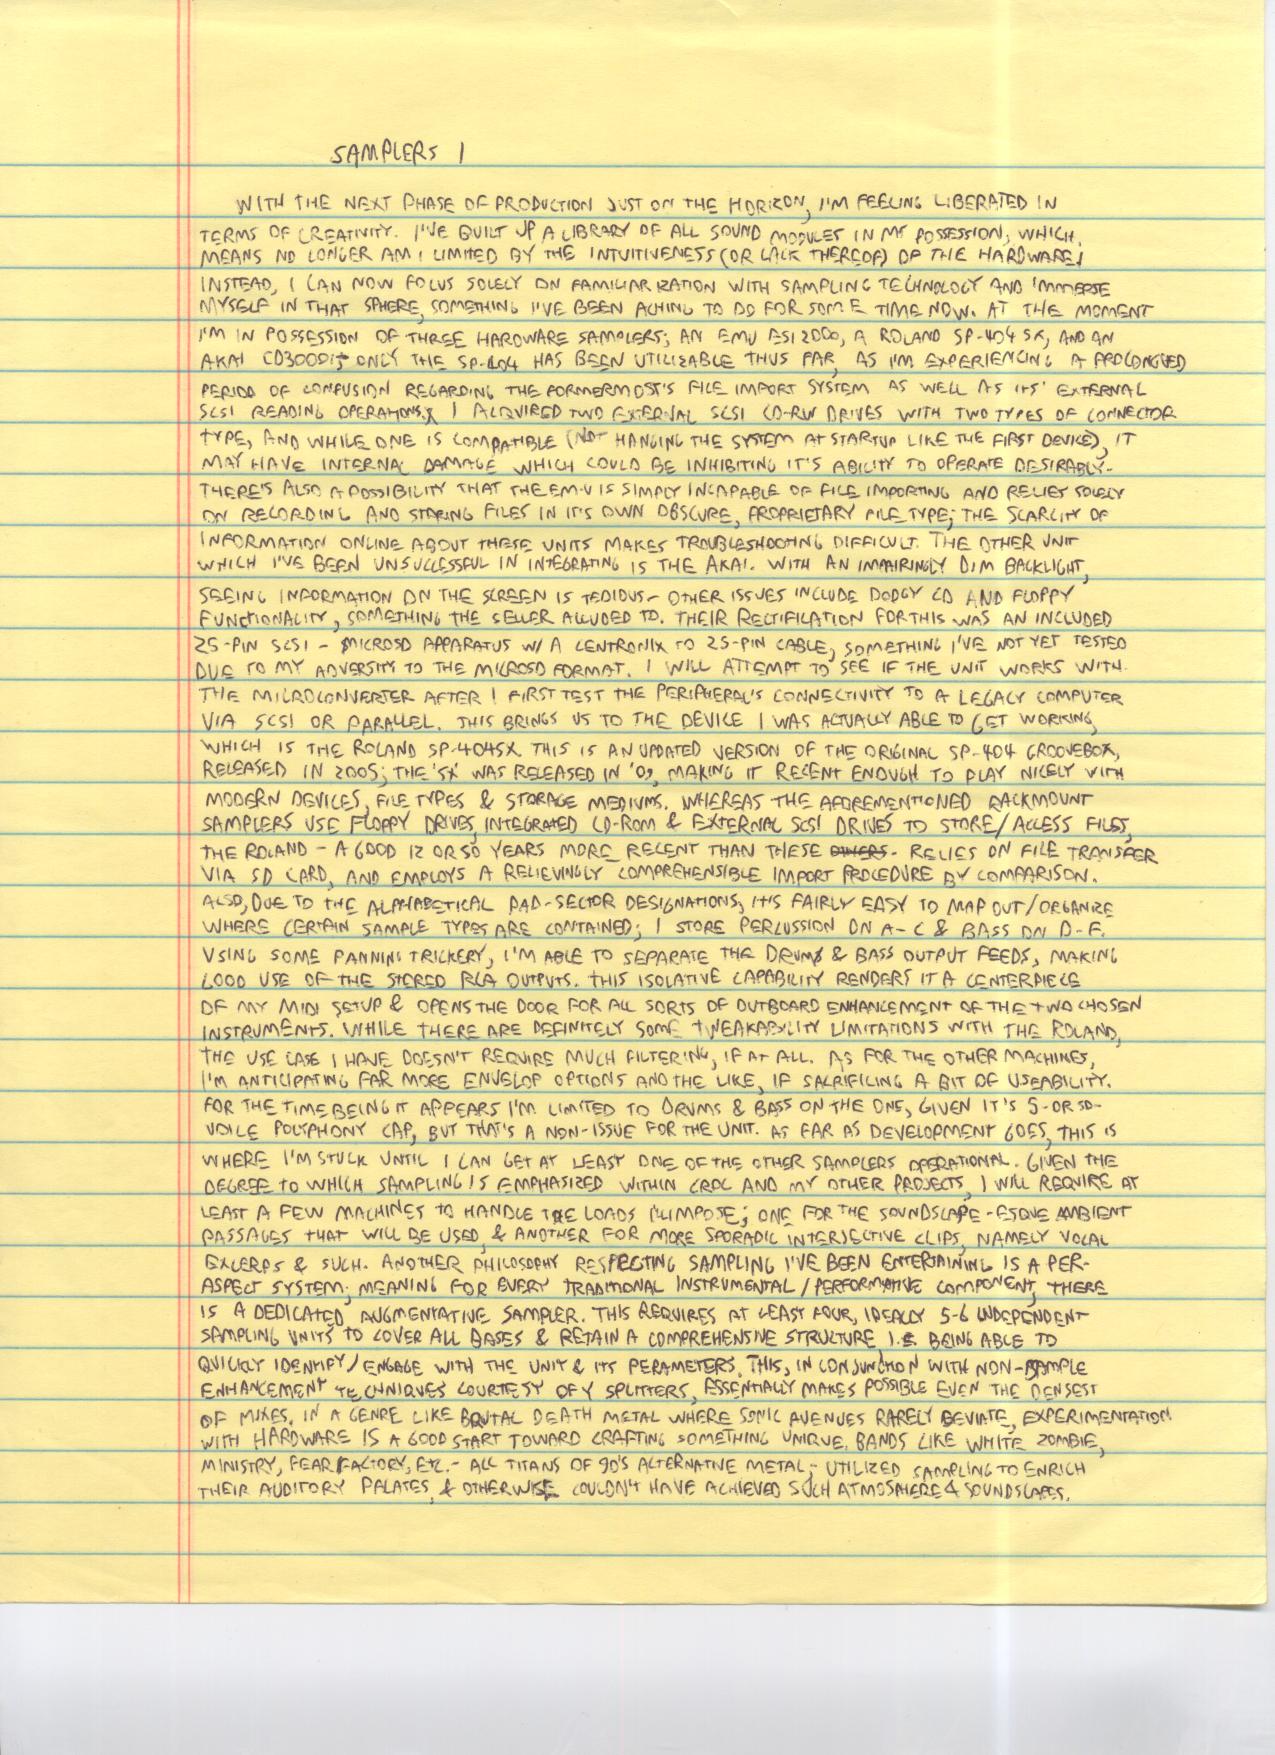 SAMPLERS 1
WITH THE NEXT PHASE OF PRODUCTION JUST ON THE HORIZON, I'M FEELING LIBERATED IN
TERMS OF CREATIVITY. I'VE BUILT UP A LIBRARY OF ALL SOUND MODULES IN MY POSSESSION, WHICH
MEANS NO LONGER AM I LIMITED BY THE INTUITIVENESS (OR LACK THEREOF) OF THE HARDWARE;
INSTEAD, I CAN NOW FOCUS SOLELY ON FAMILIARIZATION WITH SAMPLING TECHNOLOGY AND IMMERSE
MYSELF IN THAT SPHERE, SOMETHING I'VE BEEN ACHING TO DO FOR SOME TIME NOW. AT THE MOMENT
I'M IN POSSESSION OF THREE HARDWARE SAMPLERS; AN EMU ESI 2000, A ROLAND SP-404 SX, AND AN
AKAI CD3000i; ONLY THE SP-404 HAS BEEN UTILIZABLE THUS FAR, AS I'M EXPERIENCING A PROLONGED
PERIOD OF CONFUSION REGARDING THE FORMERMOST'S FILE IMPORT SYSTEM AS WELL AS ITS' EXTERNAL
SCSI READING OPERATIONS. I ACQUIRED TWO EXTERNAL SCSI CD-RW DRIVES WITH TWO TYPES OF CONNECTOR
TYPE, AND WHILE ONE IS COMPATIBLE (NOT HANGING THE SYSTEM AT STARTUP LIKE THE FIRST DEVICE), IT
MAY HAVE INTERNAL DAMAGE WHICH COULD BE INHIBITING IT'S ABILITY TO OPERATE DESIRABLY.
THERE'S ALSO A POSSIBILITY THAT THE EM-U IS SIMPLY INCAPABLE OF FILE IMPORTING AND RELIES SOLELY
ON RECORDING AND STORING FILES IN IT'S OWN OBSCURE, PROPRIETARY FILE TYPE; THE SCARCITY OF
INFORMATION ONLINE ABOUT THESE UNITS MAKES TROUBLESHOOTING DIFFICULT. THE OTHER UNIT
WHICH I'VE BEEN UNSUCCESSFUL IN INTEGRATING IS THE AKAI. WITH AN IMPAIRINGLY DIM BACKLIGHT,
SEEING INFORMATION ON THE SCREEN IS TEDIOUS - OTHER ISSUES INCLUDE DODGY CD AND FLOPPY
FUNCTIONALITY, SOMETHING THE SELLER ALLUDED TO. THEIR RECTIFICATION FOR THIS WAS AN INCLUDED
25-PIN SCSI - MICROSD APPARATUS W/ A CENTRONIX TO 25-PIN CABLE, SOMETHING I'VE NOT YET TESTED
DUE TO MY ADVERSITY TO THE MICROSD FORMAT. I WILL ATTEMPT TO SEE IF THE UNIT WORKS WITH
THE MICROCONVERTER AFTER I FIRST TEST THE PERIPHERAL'S CONNECTIVITY TO A LEGACY COMPUTER
VIA SCSI OR PARALLEL. THIS BRINGS US TO THE DEVICE I WAS ACTUALLY ABLE TO GET WORKING,
WHICH IS THE ROLAND SP-404SX. THIS IS AN UPDATED VERSION OF THE ORIGINAL SP-404 GROOVEBOX,
RELEASED IN 2005; THE 'SX' WAS RELEASED IN '09, MAKING IT RECENT ENOUGH TO PLAY NICELY WITH
MODERN DEVICES, FILE TYPES & STORAGE MEDIUMS. WHEREAS THE AFOREMENTIONED RACKMOUNT
SAMPLERS USE FLOPPY DRIVES, INTEGRATED CD-ROM & EXTERNAL SCSI DRIVES TO STORE/ACCESS FILES,
THE ROLAND - A GOOD 12 OR SO YEARS MORE RECENT THAN THESE OTHERS - RELIES ON FILE TRANSFER
VIA SD CARD, AND EMPLOYS A RELIEVINGLY COMPREHENSIBLE IMPORT PROCEDURE BY COMPARISON.
ALSO, DUE TO THE ALPHABETICAL PAD-SECTOR DESIGNATIONS, IT'S FAIRLY EASY TO MAP OUT/ORGANIZE
WHERE CERTAIN SAMPLE TYPES ARE CONTAINED; I STORE PERCUSSION ON A-C & BASS ON D-F.
USING SOME PANNING TRICKERY, I'M ABLE TO SEPARATE THE DRUMS & BASS OUTPUT FEEDS, MAKING
GOOD USE OF THE STEREO RCA OUTPUTS. THIS ISOLATIVE CAPABILITY RENDERS IT A CENTERPIECE
OF MY MIDI SETUP & OPENS THE DOOR FOR ALL SORTS OF OUTBOARD ENHANCEMENT OF THE TWO CHOSEN
INSTRUMENTS. WHILE THERE ARE DEFINITELY SOME TWEAKABILITY LIMITATIONS WITH THE ROLAND,
THE USE CASE I HAVE DOESN'T REQUIRE MUCH FILTERING, IF AT ALL. AS FOR THE OTHER MACHINES,
I'M ANTICIPATING FAR MORE ENVELOP OPTIONS AND THE LIKE, IF SACRIFICING A BIT OF USEABILITY.
FOR THE TIME BEING IT APPEARS I'M LIMITED TO DRUMS & BASS ON THE ONE, GIVEN IT'S 5-OR SO-
VOICE POLYPHONY CAP, BUT THAT'S A NON-ISSUE FOR THE UNIT. AS FAR AS DEVELOPMENT GOES, THIS IS
WHERE I'M STUCK UNTIL I CAN GET AT LEAST ONE OF THE OTHER SAMPLERS OPERATIONAL. GIVEN THE
DEGREE TO WHICH SAMPLING IS EMPHASIZED WITHIN CRDL AND MY OTHER PROJECTS, I WILL REQUIRE AT
LEAST A FEW MACHINES TO HANDLE THE LOADS I IMPOSE; ONE FOR THE SOUNDSCAPE-ESQUE AMBIENT
PASSAGES THAT WILL BE USED, & ANOTHER FOR MORE SPORADIC INTERJECTIVE CLIPS, NAMELY VOCAL
EXCERPS & SUCH. ANOTHER PHILOSOPHY RESPECTING SAMPLING I'VE BEEN ENTERTAINING IS A PER-
ASPECT SYSTEM; MEANING FOR EVERY TRADITIONAL INSTRUMENTAL/PERFORMATIVE COMPONENT, THERE
IS A DEDICATED AUGMENTATIVE SAMPLER. THIS REQUIRES AT LEAST FOUR, IDEALLY 5-6 INDEPENDENT
SAMPLING UNITS TO COVER ALL BASES & RETAIN A COMPREHENSIVE STRUCTURE I.E. BEING ABLE TO
QUICKLY IDENTIFY/ENGAGE WITH THE UNIT & ITS PERAMETERS. THIS, IN CONJUNCTION WITH NON-SAMPLE
ENHANCEMENT TECHNIQUES COURTESY OF Y SPLITTERS, ESSENTIALLY MAKES POSSIBLE EVEN THE DENSEST
OF MIXES. IN A GENRE LIKE BRUTAL DEATH METAL WHERE SONIC AVENUES RARELY DEVIATE, EXPERIMENTATION
WITH HARDWARE IS A GOOD START TOWARD CRAFTING SOMETHING UNIQUE. BANDS LIKE WHITE ZOMBIE,
MINISTRY, FEAR FACTORY, ETC. - ALL TITANS OF 90'S ALTERNATIVE METAL - UTILIZED SAMPLING TO ENRICH
THEIR AUDITORY PALATES, & OTHERWISE COULDN'T HAVE ACHIEVED SUCH ATMOSPHERE & SOUNDSCAPES.